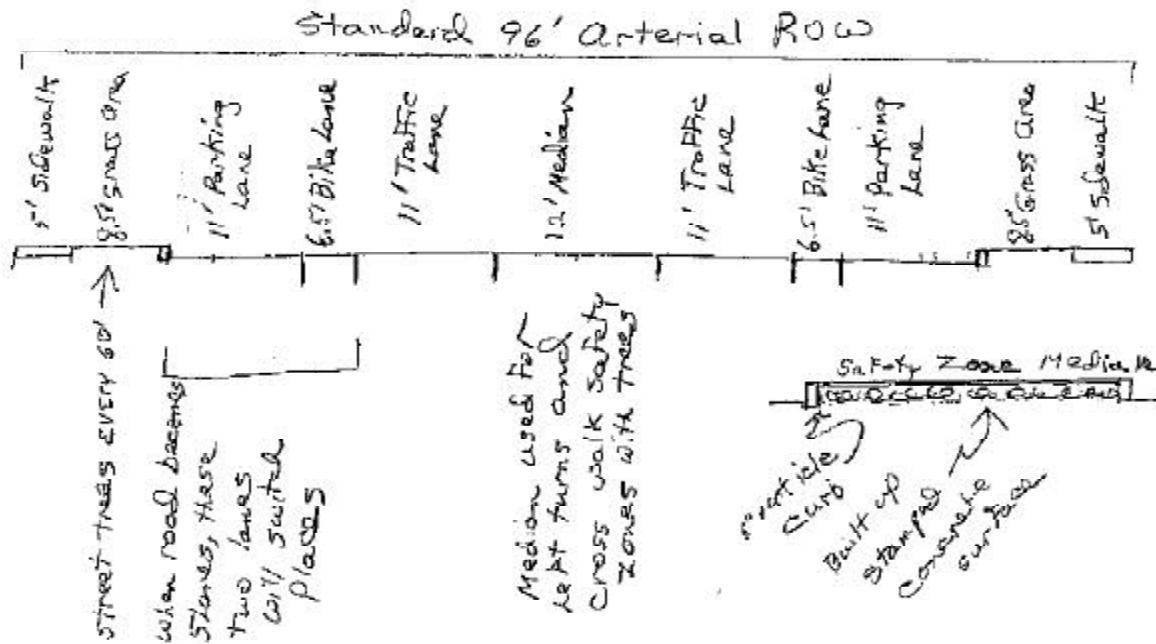 Standard 96' Arterial ROW
5' Sidewalk
8.5' Grass Area
11' Parking
Lane
6.5' Bike Lane
11' Traffic
Lane
12' Median
11' Traffic
Lane
6.5' Bike Lane
11' Parking
Lane
8.5' Grass Area
5' Sidewalk
Street trees every 60'
When road becomes
these
two lanes
will switch
places
Median used for
Left turns and
Cross walk safety
Zones with trees
Safety Zone Median
curb
Built up
Stamped
Concrete
surface